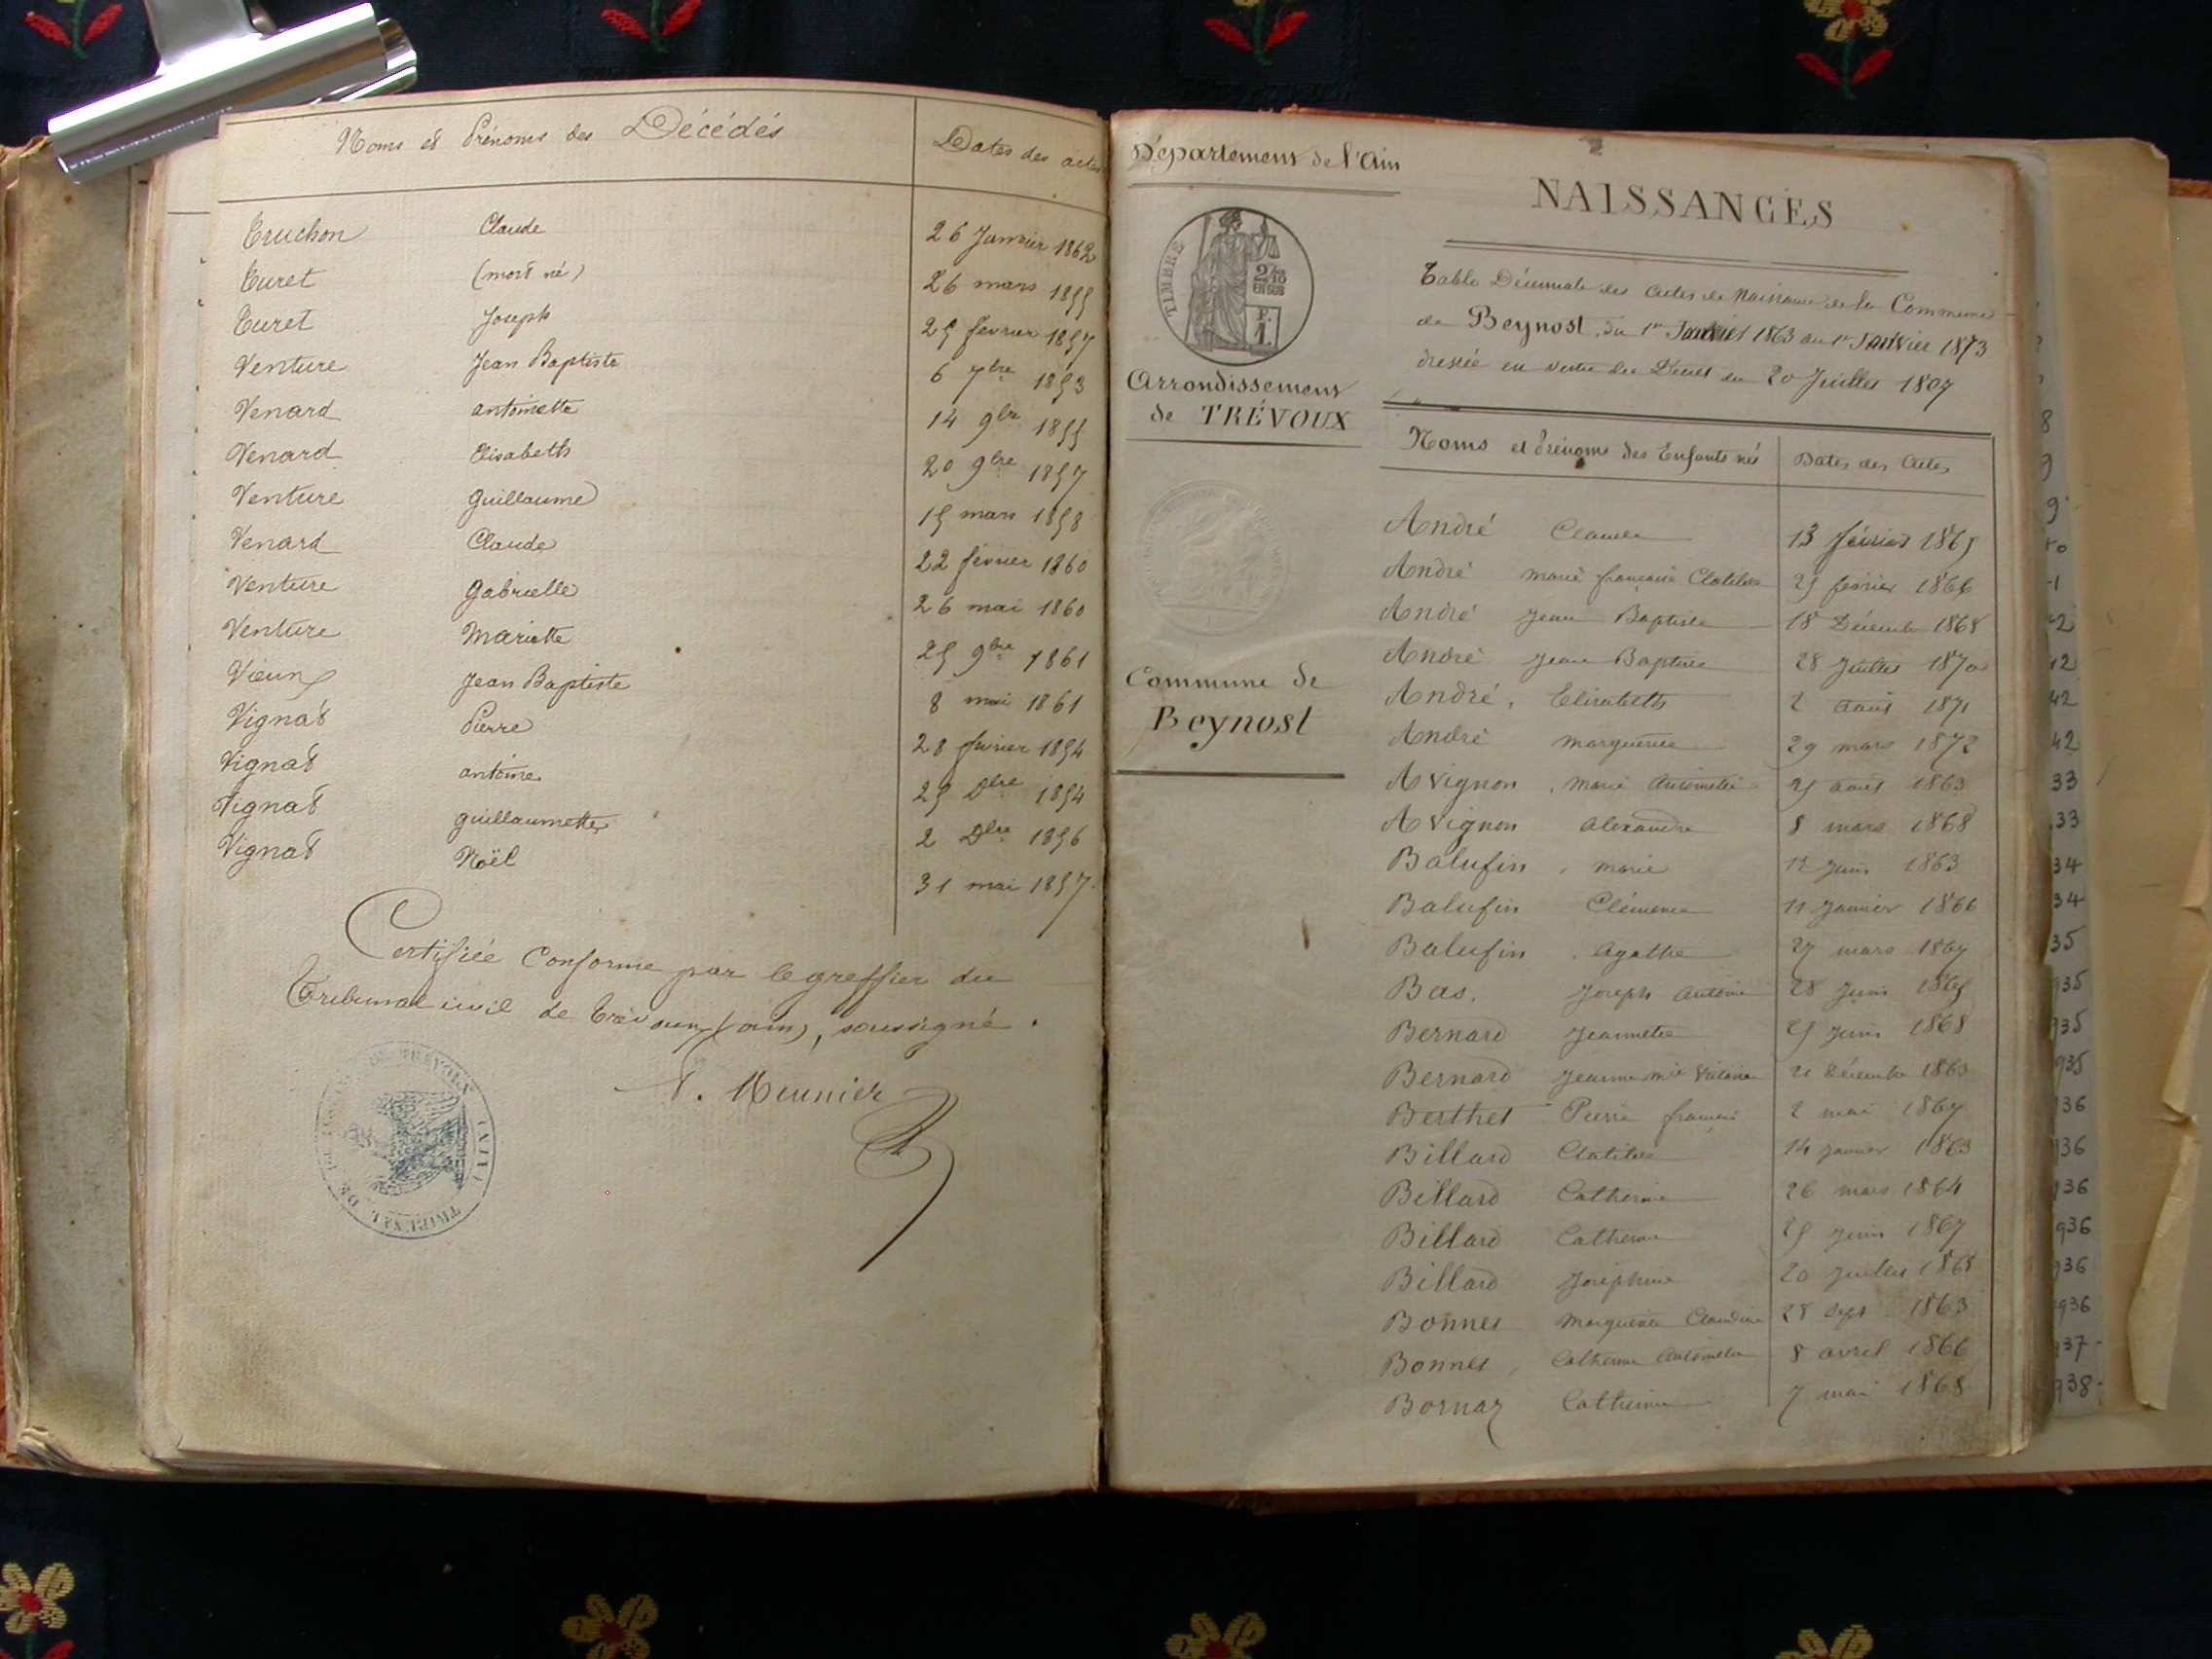 Noms et Prénoms des Décédés Dates des actes
Truchon Claude 26 Janvier 1862
Turet (mort né) 26 mars 1855
Turet Joseph 25 février 1857
Venture Jean Baptiste 6 7bre 1853
Venard antoinette 14 9bre 1855
Venard Elisabeth 20 9bre 1857
Venture Guillaume 15 mars 1858
Venard Claude 22 février 1860
Venture Gabrielle 26 mai 1860
Venture Mariette 25 9bre 1861
Vieux Jean Baptiste 8 mai 1861
Vignat Pierre 28 février 1854
Vignat antoine 25 Dbre 1854
Vignat guillaumette 2 Dbre 1856
Vignat Noël 31 mai 1857
Certifiée Conforme par le greffier du
Tribunal civil de Trévoux (ain), soussigné.
Meunier
Département de l'Ain
TIMBRE
2/10
EN SUS
F.
1.
Arrondissement
de TRÉVOUX
Commune de
Beynost
NAISSANCES
Table Décennale des Actes de Naissance de la Commune
de Beynost, du 1er Janvier 1863 au 1er Janvier 1873
dressée en vertu du Décret du 20 Juillet 1807
Noms et Prénoms des Enfants nés Dates des Actes
André Claude 13 février 1865
André Marie françoise Clotilde 25 février 1866
André Jean Baptiste 18 Décembre 1868
André Jean Baptiste 28 Juillet 1870
André, Elisabeth 2 août 1871
André Marguerite 29 mars 1872
Avignon, Marie Antoinette 25 août 1863
Avignon Alexandre 8 mars 1868
Balufin, Marie 12 Juin 1863
Balufin Clémence 11 Janvier 1866
Balufin, Agathe 27 mars 1867
Bas, Joseph Antoine 28 Juin 1865
Bernard Jeannette 25 Juin 1868
Bernard Jeanne Mie Victoire Décembre 1863
Berthet Pierre françois 2 mai 1867
Billard Clotilde 14 Janvier 1863
Billard Catherine 26 mars 1864
Billard Catherine 25 Juin 1867
Billard Joséphine 20 Juillet 1868
Bonnet Marguerite Claudine 28 Sept 1863
Bonnet, Catherine Antoinette 8 avril 1866
Bornaz Catherine 7 mai 1868
8
9
9
42
42
42
33
33
34
34
35
935
935
935
936
936
936
936
936
936
937
938